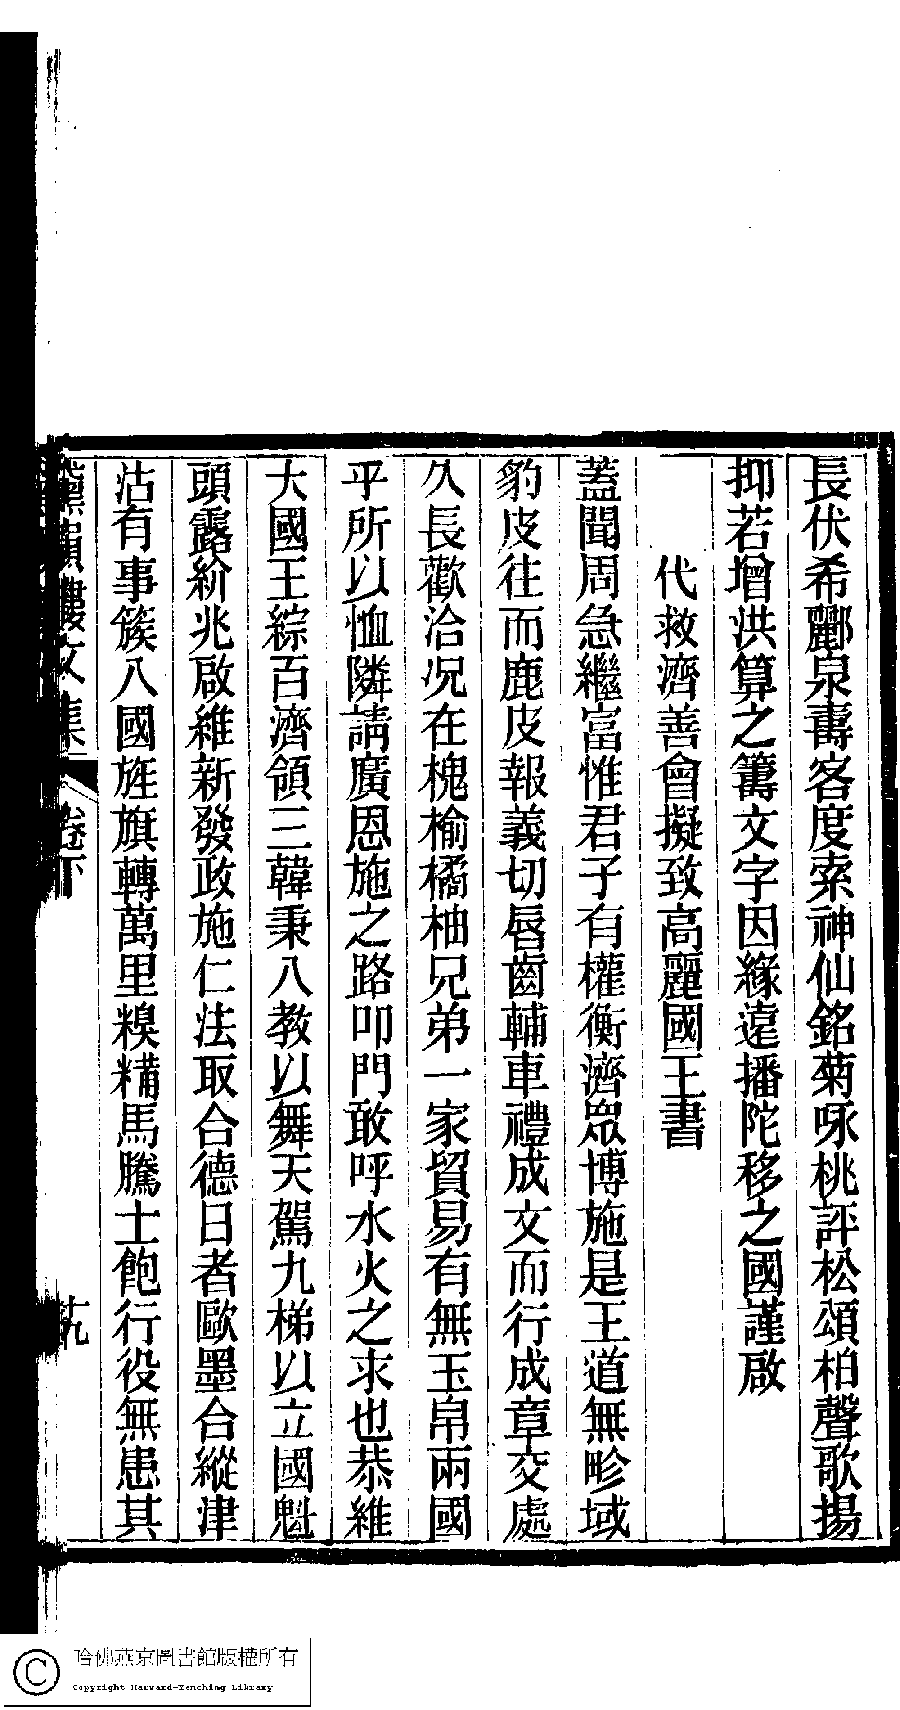 長伏希酈泉壽客度索神仙銘菊咏桃評松頌柏聲歌揚
抑若增洪算之籌文字因緣遠播陀移之國謹啟
代救濟善會擬致高麗國王書
蓋聞周急繼富惟君子有權衡濟眾博施是王道無畛域
豹皮往而鹿皮報義切唇齒輔車禮成文而行成章交處
久長歡洽況在槐榆橘柚兄弟一家貿易有無玉帛兩國
乎所以恤隣請廣恩施之路叩門敢呼水火之求也恭維
大國王綜百濟領三韓秉八教以舞天駕九梯以立國魁
頭露紒兆啟維新發政施仁法取合德日者歐墨合縱津
沽有事簇八國旌旗轉萬里糗糒馬騰士飽行役無患其
文集
卷下
十九
哈佛燕京圖書館版權所有
Copyright Harvard-Yenching Library